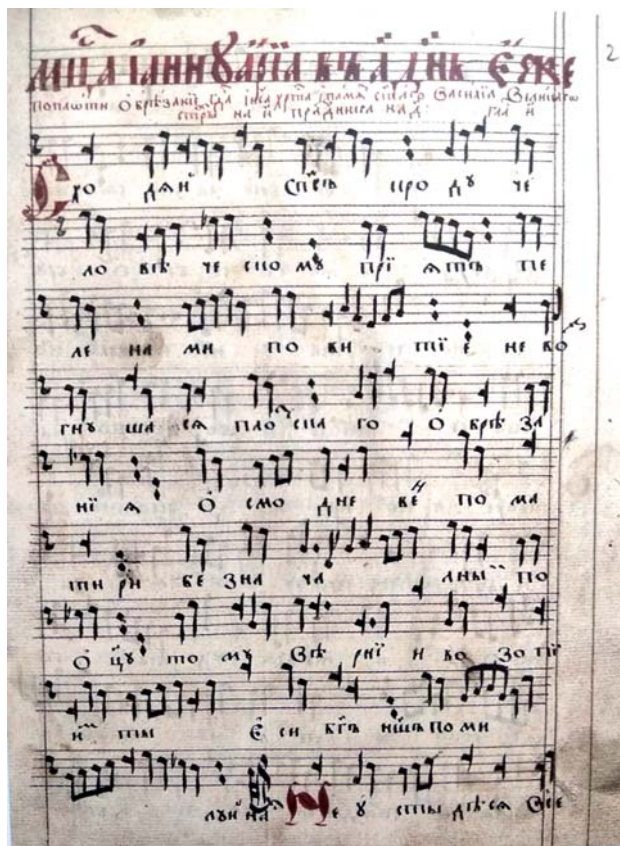 мц҃а їаннꙋарїа въ а҃ дн҃ь є҃же
поплоти обрѣзанїє гд҃а їс҃а хрⷭ҇та ї памѧⷮ ст҃аго василїа великаго
стрⷯы на и҃ праздника над: гла и҃
Сходѧй сп҃съ кродꙋ че
ловѣ че скомꙋ прї ѧтъ пе
ле на ми по ви тїе не во
гнꙋ ша сѧ пло скаго о брѣ за
нїѧ о смо дне веⷩ по ма
ти ри бе зна чалныⷨ по
о цꙋ то мꙋ вѣ рнїи во зо пї
иⷨ ты є си бг҃ъ нш҃ъ по ми
лꙋй наⷭ Не ꙋ сты дѣ сѧ все
2